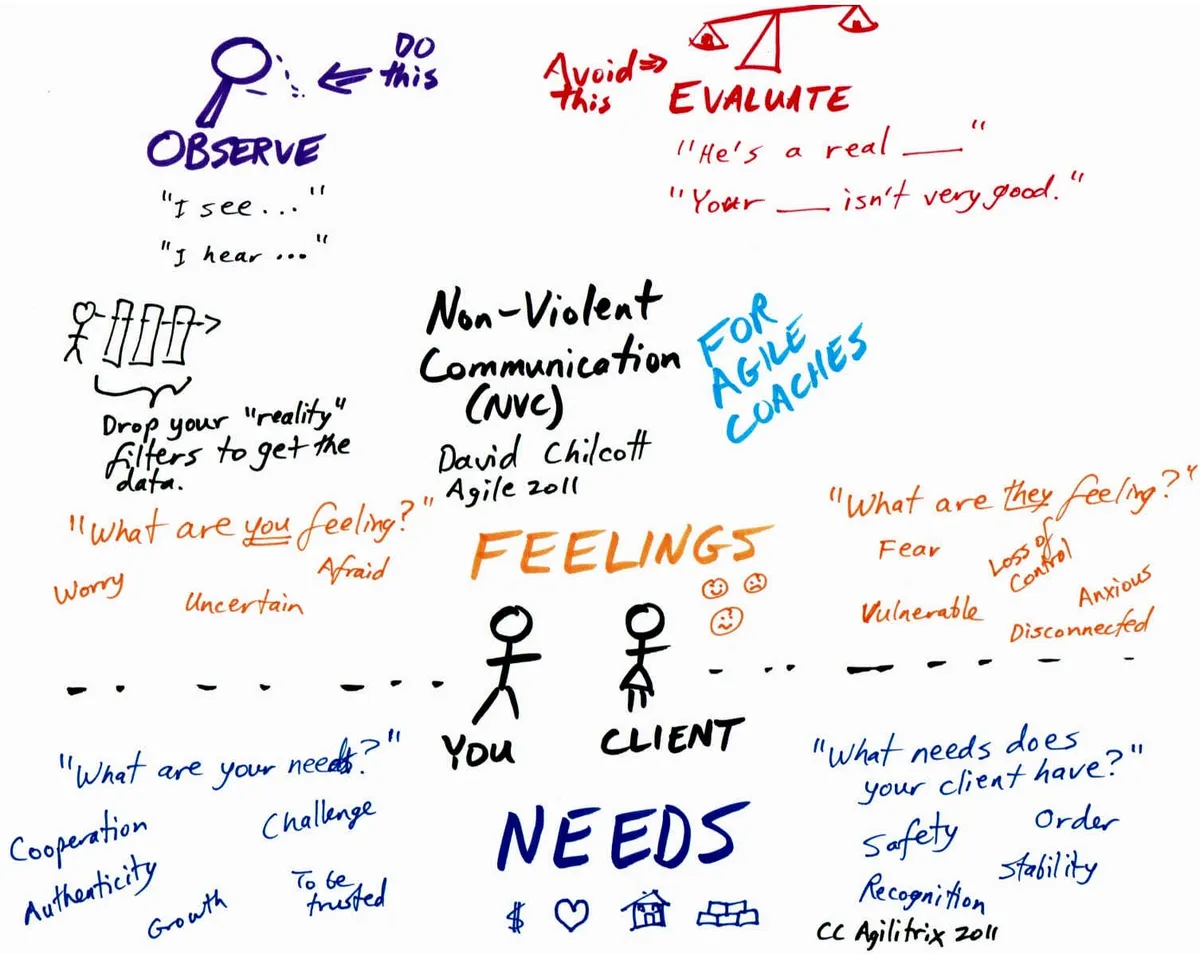 DO
this
OBSERVE
"I see..."
"I hear ..."
Avoid
this
EVALUATE
"He's a real ___"
"Your ___ isn't very good."
Drop your "reality"
filters to get the
data.
Non-Violent
Communication
(NVC)
David Chilcott
Agile 2011
FOR
AGILE
COACHES
"What are you feeling?"
Worry
Uncertain
Afraid
FEELINGS
"What are they feeling?"
Fear
Loss of
Control
Vulnerable
Anxious
Disconnected
YOU
CLIENT
"What are your needs?"
Cooperation
Challenge
Authenticity
Growth
To be
trusted
NEEDS
$
"What needs does
your client have?"
Safety
Order
Stability
Recognition
CC Agilitrix 2011